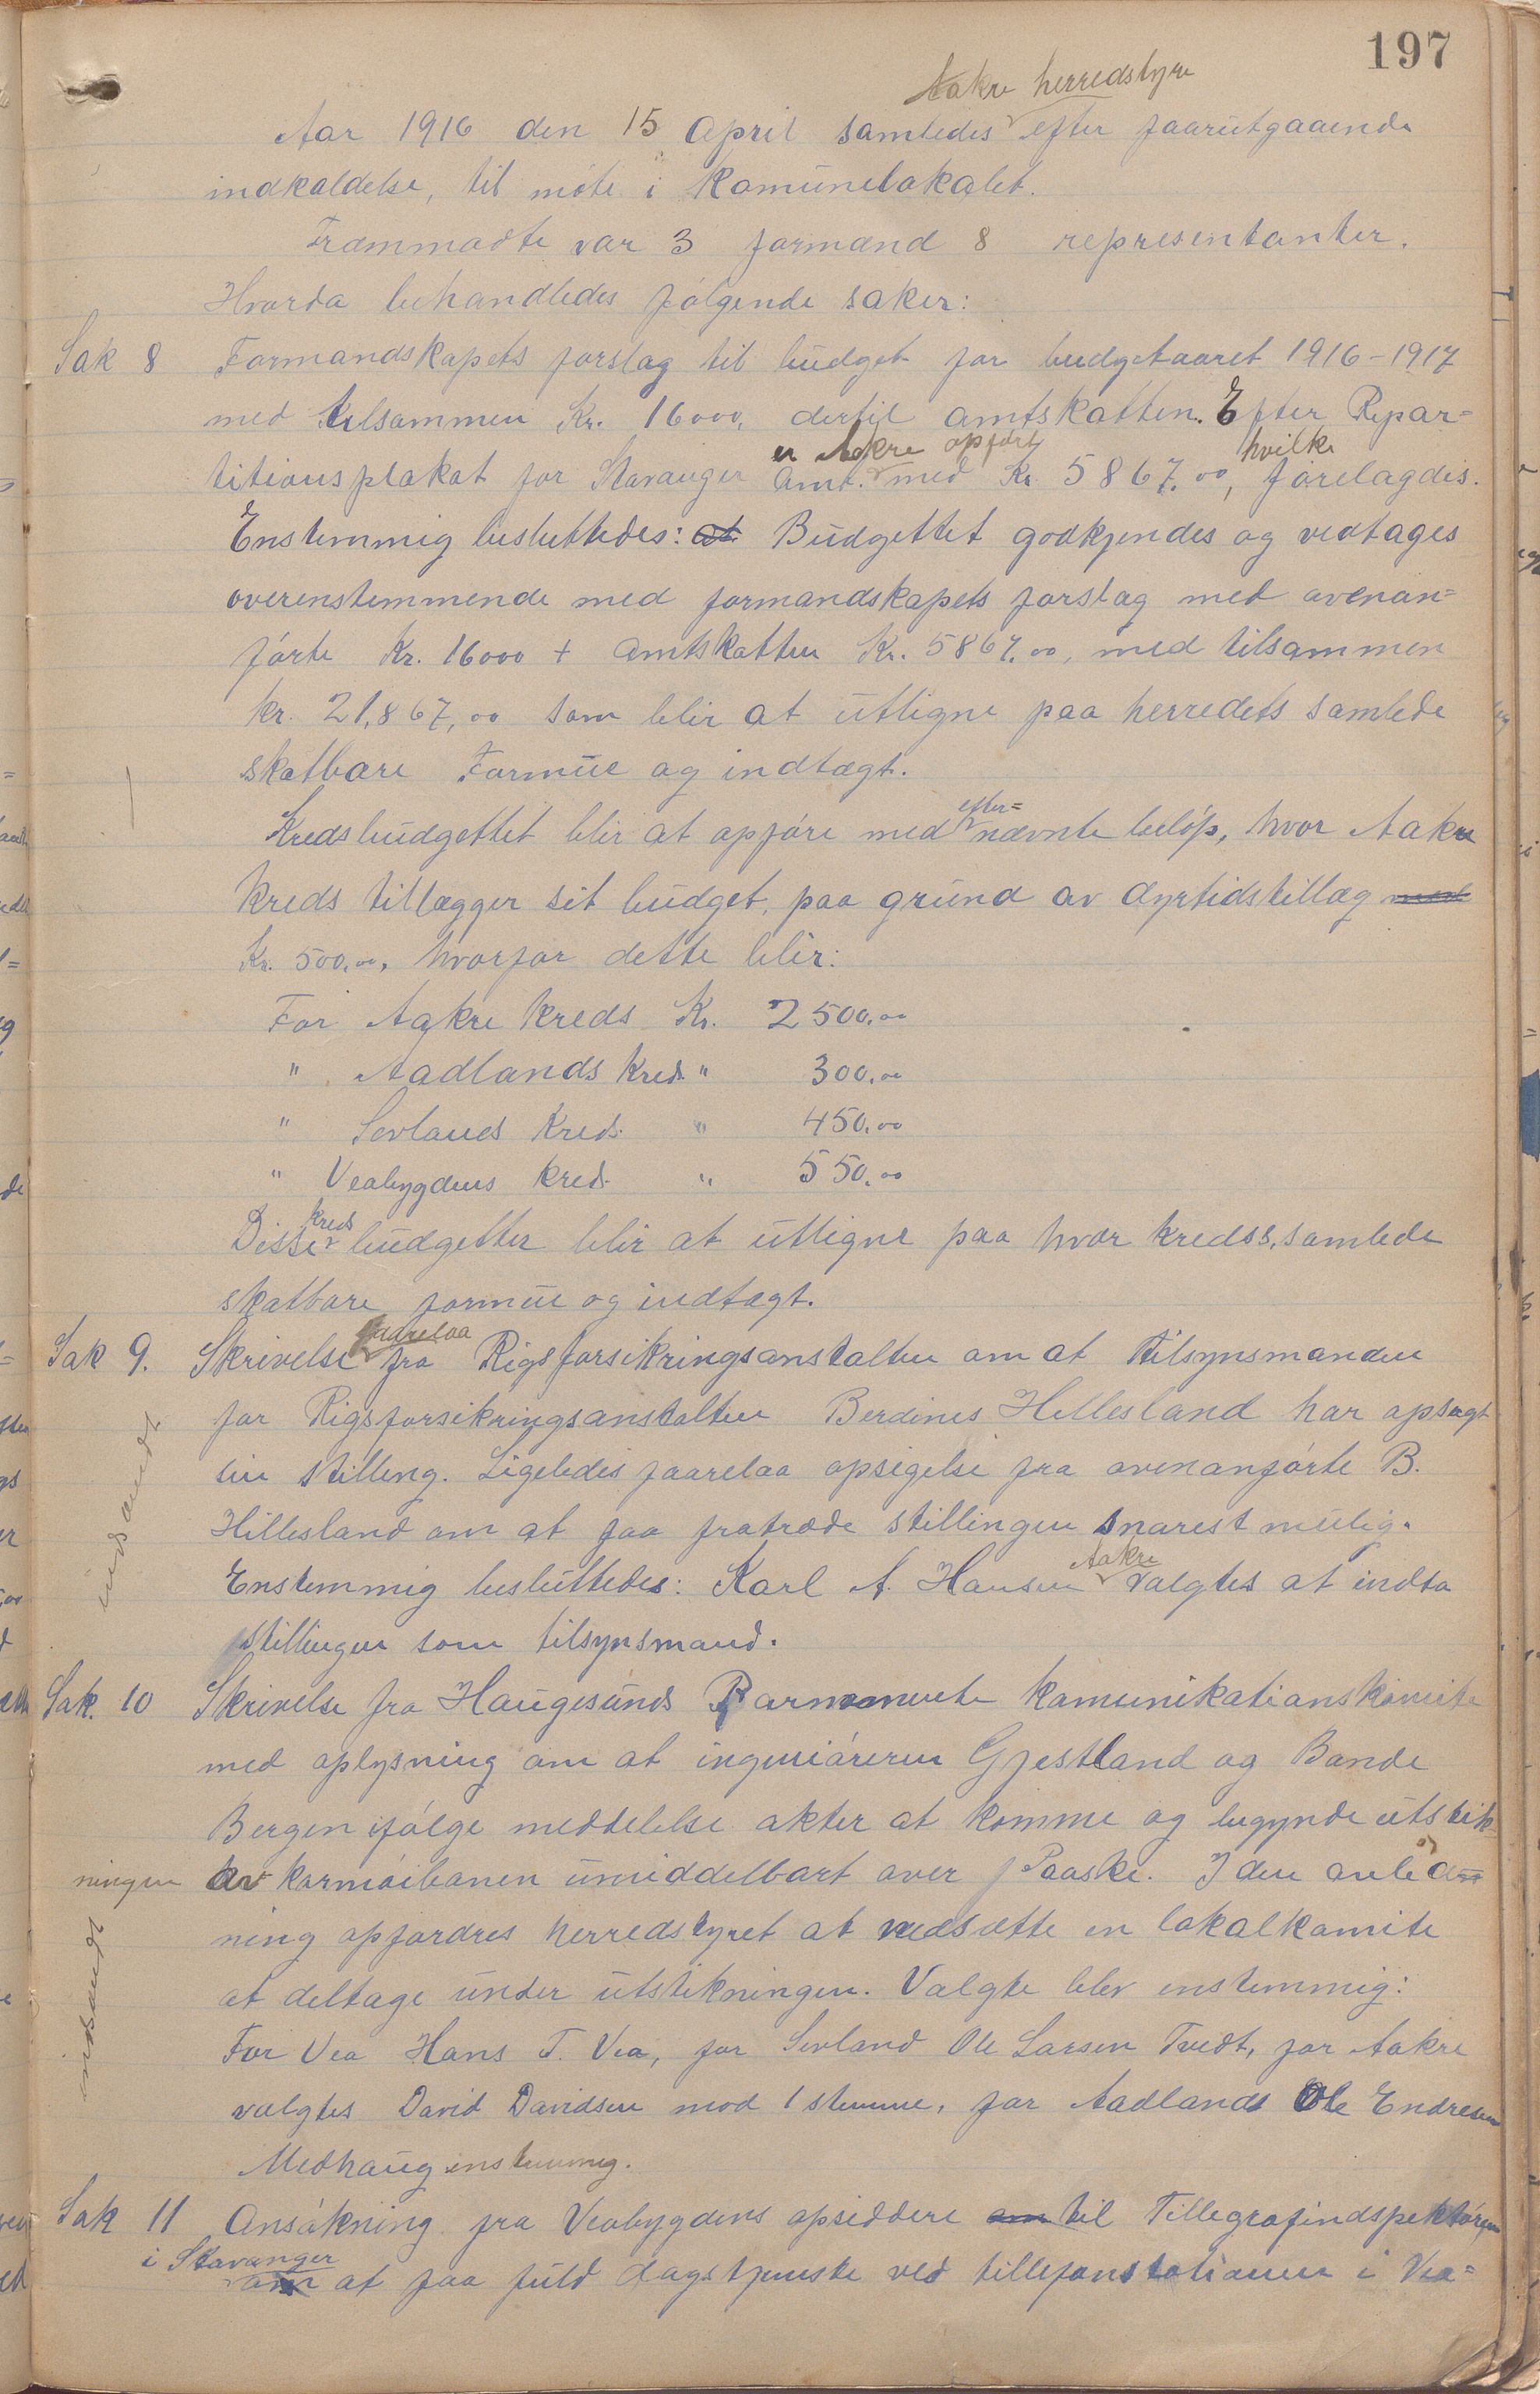 197
Aakre herredstyre
Aar 1916 den 15 April samledes efter faarutgaaende
indkaldelse, til møte i Komunelokalet.
Frammødte var 3 formænd 8 representanter.
Hvorda behandledes følgende saker:
Sak 8 Formandskapets forslag til budget for budgetaaret 1916-1917
med tilsammen Kr. 16000, dertil amtskatten. Efter Repar=
er Aakre opført hvilke
titionsplakat for Stavanger Amt. med Kr. 5867.00, forelagdes.
Enstemmig besluttedes: at Budgettet godkjendes og vedtages
overenstemmende med formandskapets forslag med ovenan=
førte Kr. 16000 + Amtskatten Kr. 5867.00, med tilsammen
kr. 21,867,00 som blir at utligne paa herredets samlede
skatbare Formue og indtægt.
efter=
Kredsbudgettet blir at opføre med nævnte beløp, hvor Aakre
kreds tillægger sit budget, paa grund av dyrtidstillæg med
Kr. 500.00, hvorfor dette blir:
For Aakre Kreds Kr. 2500.00
" Aadlands Kreds " 300.00
" Sevlands Kreds " 450.00
" Veabygdens kreds " 550.00
kreds
Disse budgetter blir at utligne paa hver kredss, samlede
skatbare formue og indtægt.
faarelaa
Sak 9. Skrivelse fra Rigsforsikringsanstalten om at Tilsynsmanden
for Rigsforsikringsanstalten Berdines Hillesland har opsagt
sin stilling. Ligeledes faarelaa opsigelse fra ovenanførte B.
Hillesland om at faa fratræde stillingen snarest mulig.
Aakre
Enstemmig besluttedes: Karl A. Hansen valgtes at indta
stillingen som tilsynsmand.
utsendt
Sak. 10 Skrivelse fra Haugesunds Permanente Komunikationskomite
med oplysning om at ingeniøreren Gjestland og Bonde
Bergen ifølge meddelelse akter at komme og begynde utstik-
ningen av karmøibanen umiddelbart over Paaske. I den anled
ning opfordres herredstyret at nedsætte en lokalkomite
at deltage under utstikningen. Valgte blev enstemmig:
For Vea Hans T. Vea, for Sevland Ole Larsen Tvedt, for Aakre
valgtes David Davidsen mod 1 stemme, for Aadlands Ole Endresen
Medhaug enstemmig.
utsendt
Sak 11 Ansøkning fra Veabygdens opsiddere om til Tillegrafindspektøren
i Stavanger
om at faa fuld dagstjeneste ved tillefonstationen i Vea=